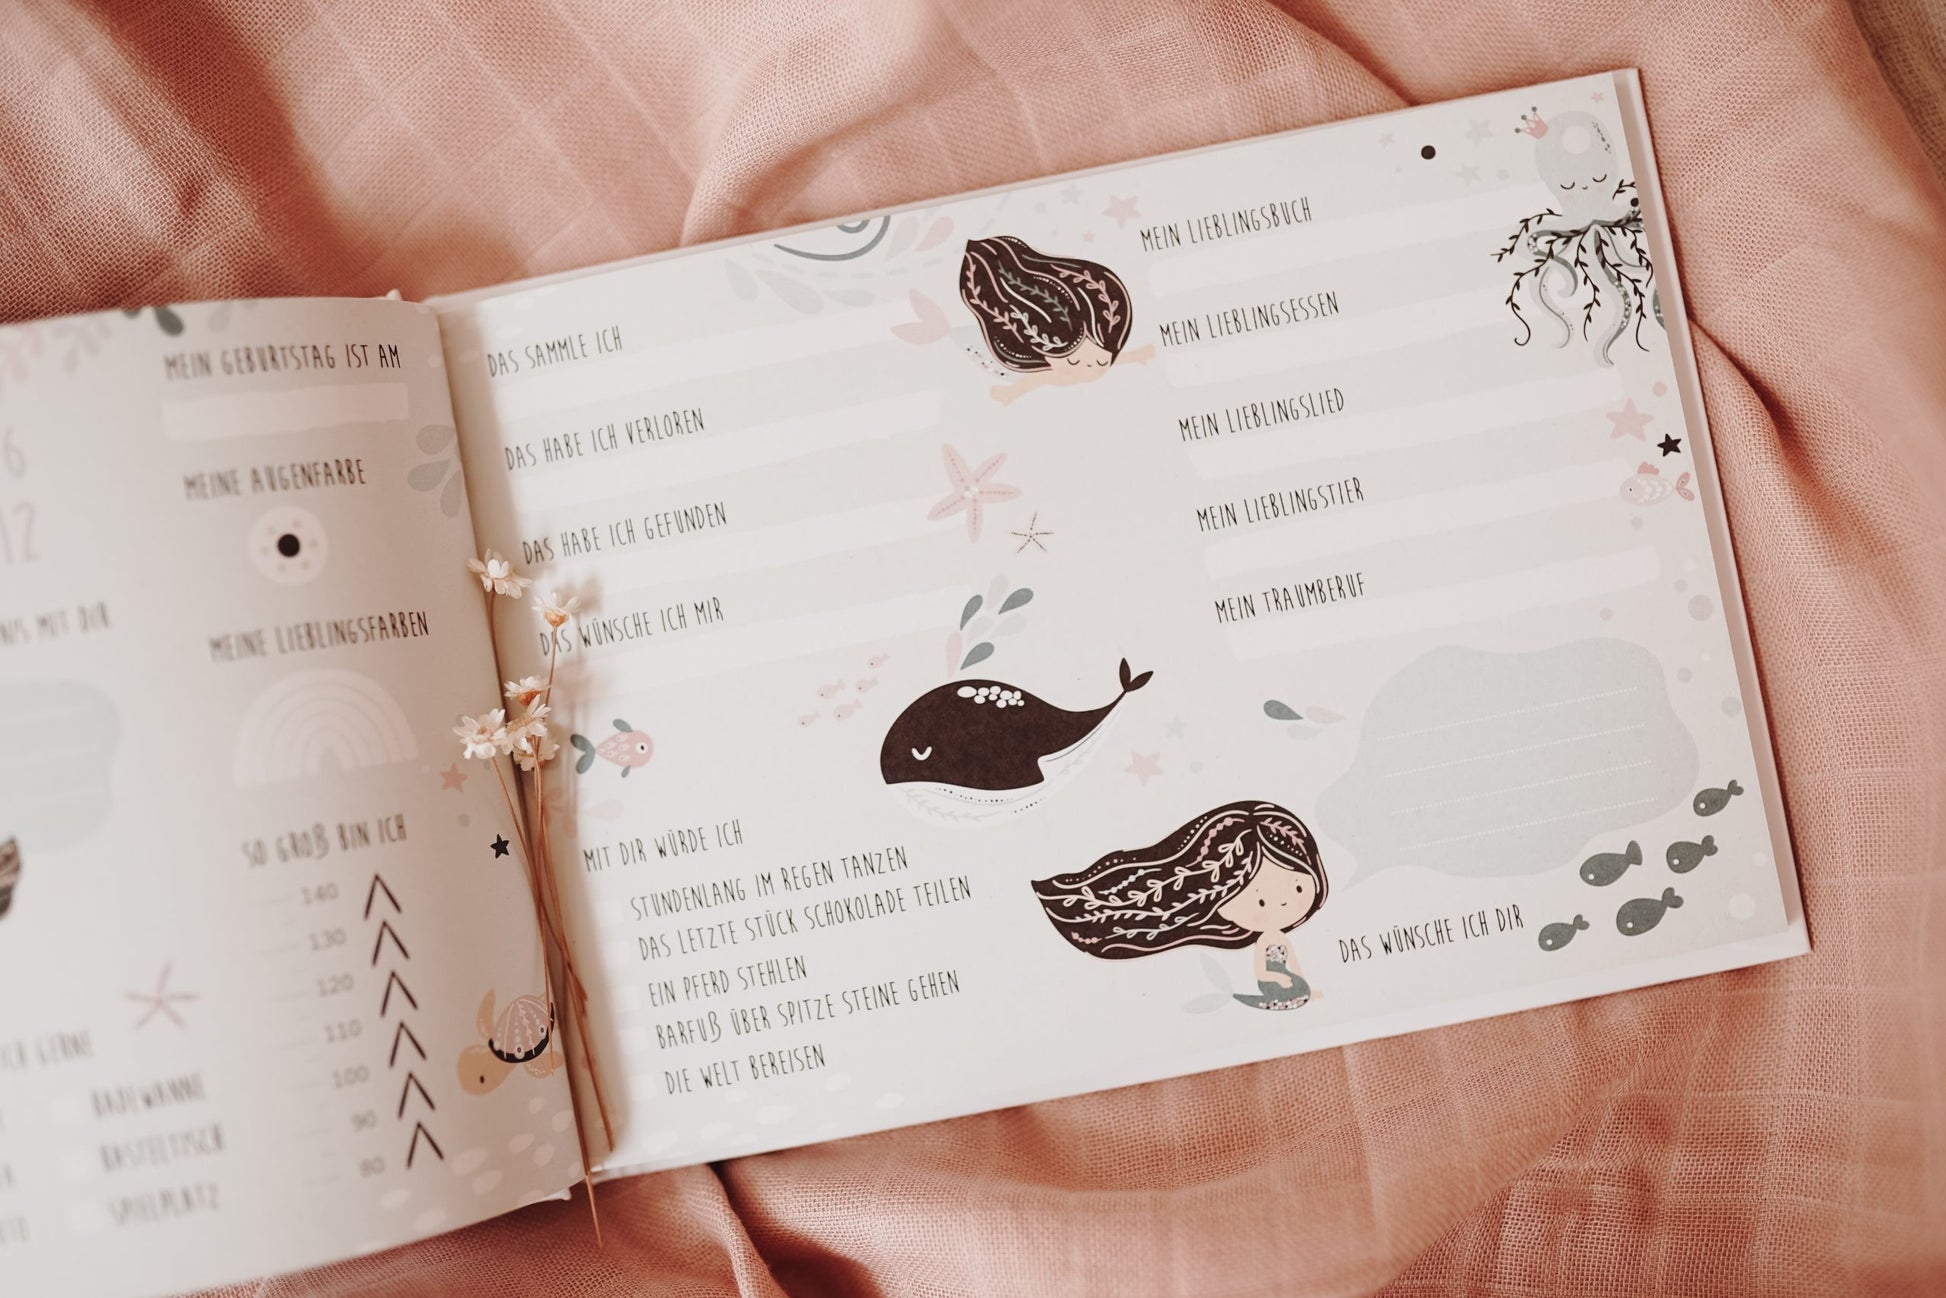 6
12
MIT DIR
GERNE
BADEWANNE
BASTELTISCH
SPIELPLATZ
MEIN GEBURTSTAG IST AM
MEINE AUGENFARBE
MEINE LIEBLINGSFARBEN
SO GROß BIN ICH
140
130
120
110
100
90
80
DAS SAMMLE ICH
DAS HABE ICH VERLOREN
DAS HABE ICH GEFUNDEN
DAS WÜNSCHE ICH MIR
MIT DIR WÜRDE ICH
STUNDENLANG IM REGEN TANZEN
DAS LETZTE STÜCK SCHOKOLADE TEILEN
EIN PFERD STEHLEN
BARFUß ÜBER SPITZE STEINE GEHEN
DIE WELT BEREISEN
MEIN LIEBLINGSBUCH
MEIN LIEBLINGSESSEN
MEIN LIEBLINGSLIED
MEIN LIEBLINGSTIER
MEIN TRAUMBERUF
DAS WÜNSCHE ICH DIR